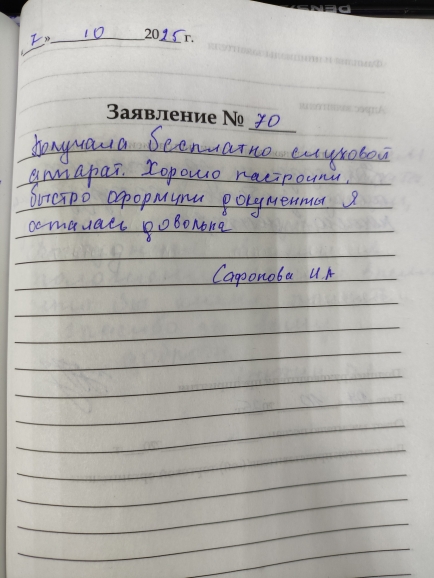 «7» 10 2025 г.
Заявление № 70
Получала бесплатно слуховой
аппарат. Хорошо настроили,
быстро оформили документы Я
осталась довольна
Сафонова И.А